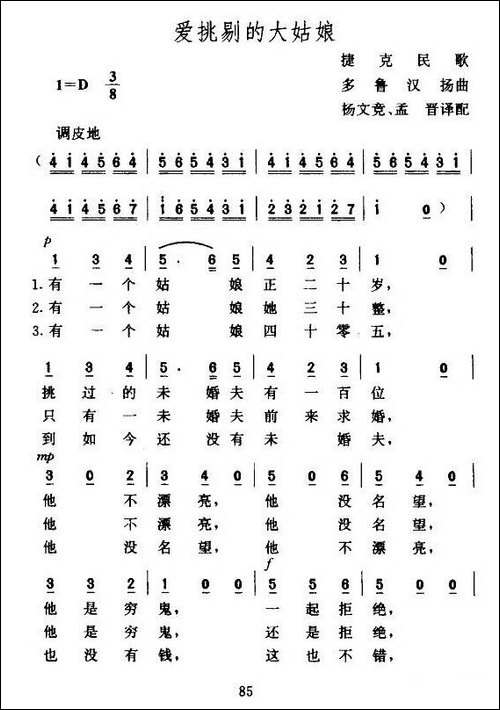 爱挑剔的大姑娘
捷克民歌
1=D 3/8
多鲁汉扬曲
杨文竞、孟晋译配
调皮地
( 4 1 4 5 6 4 | 5 6 5 4 3 1 | 4 1 4 5 6 4 | 5 6 5 4 3 1 |
4 1 4 5 6 7 | 1 6 5 4 3 1 | 2 3 2 1 2 7 | 1 0 )
p
1 3 4 | 5 . 6 5 | 4 2 3 | 1 0 |
1. 有一个姑娘正二十岁,
2. 有一个姑娘她三十整,
3. 有一个姑娘四十零五,
1 3 4 | 5 . 6 5 | 4 2 3 | 1 0 |
挑过的未婚夫有一百位
只有一未婚夫前来求婚,
到如今还没有未婚夫,
mp
3 0 2 | 3 4 0 | 4 0 6 | 5 4 0 |
他不漂亮,他没名望,
他不漂亮,他没名望,
他没名望,他不漂亮,
f
3 3 2 | 1 0 0 | 5 3 4 | 5 0 0 |
他是穷鬼,一起拒绝,
他是穷鬼,还是拒绝,
也没有钱,这也不错,
85